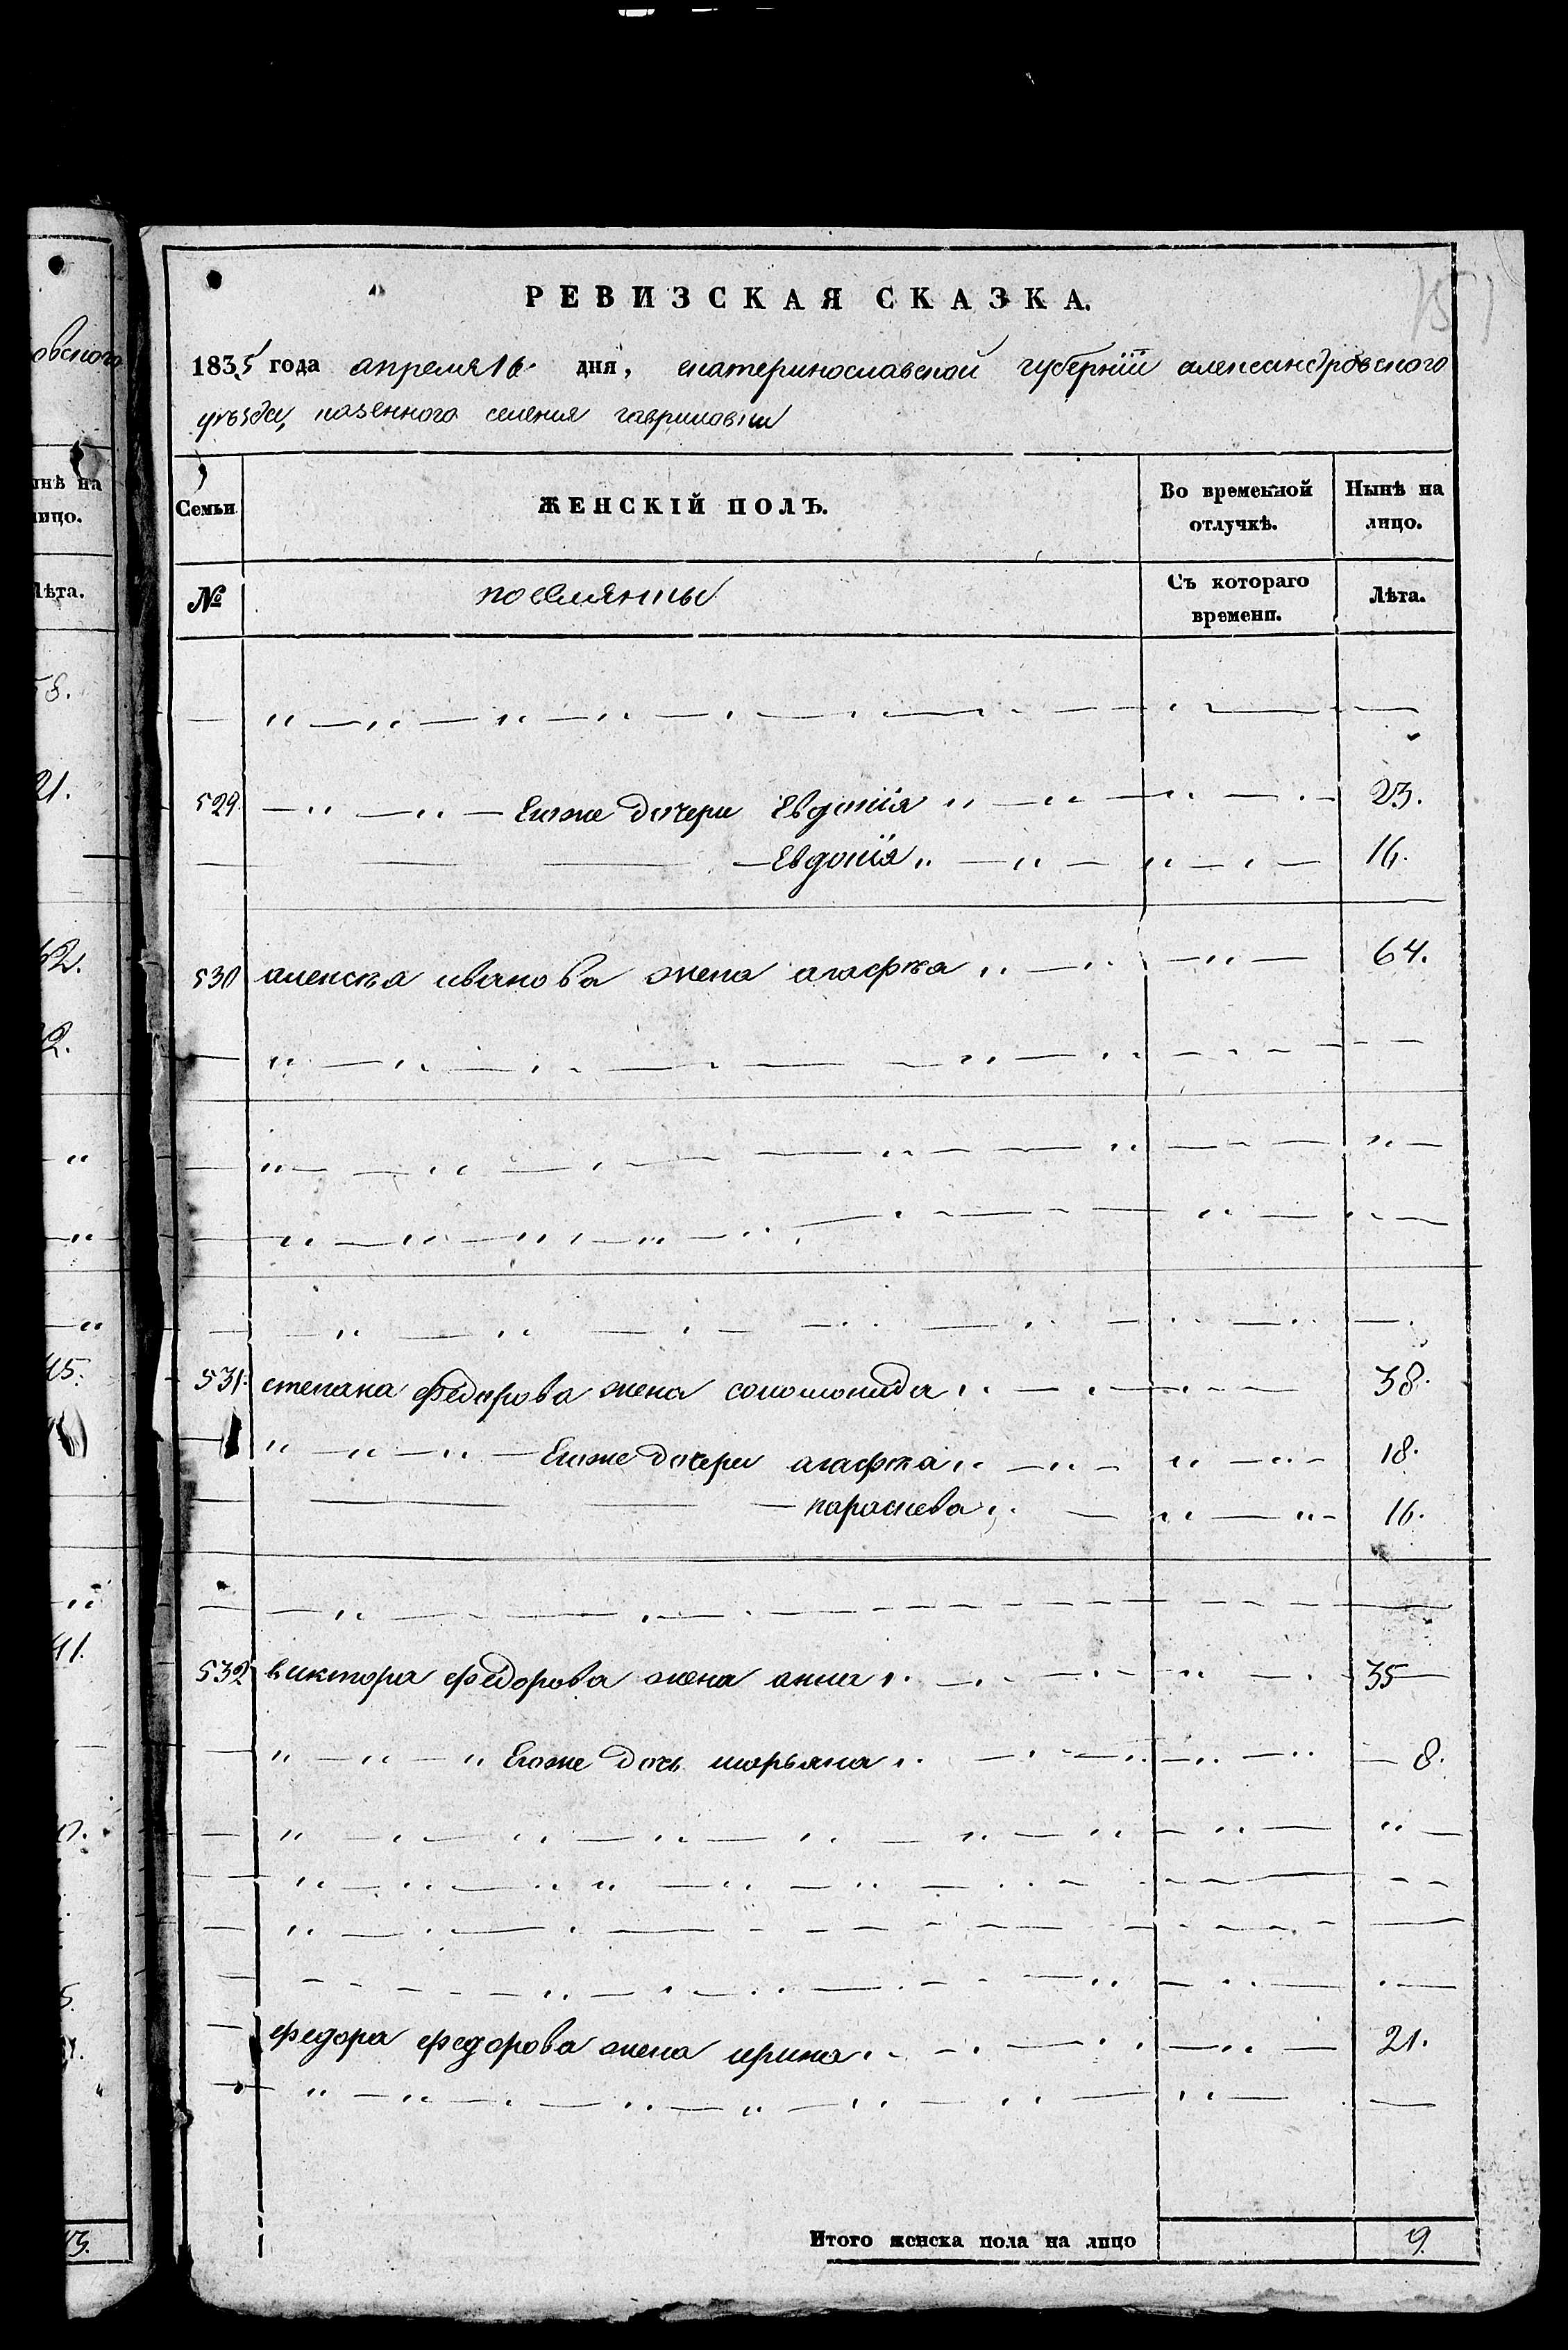 РЕВИЗСКАЯ СКАЗКА.
1835 года апреля 16 дня, екатеринославской губернiи александровского
уѣзда, казенного селения гавриловки
Семьи ЖЕНСКІЙ ПОЛЪ. Во временной отлучкѣ. Нынѣ на лицо.
№ поселянъе Съ котораго времени. Лѣта.
529. Егоже дочери Евдокiя 23.
Евдокiя 16.
530 алексѣа иванова жена агафѣа 64.
531. степана федорова жена соломонида 38.
Егоже дочери агафѣа 18.
параскева 16.
532 виктора федорова жена анна 35
Егоже дочь марьяна 8.
федора федорова жена ирина 21.
Итого женска пола на лицо 9.